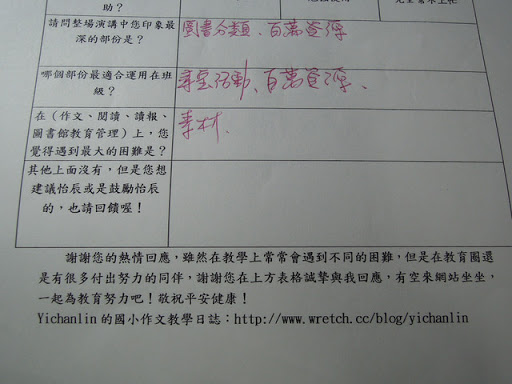 助？
請問整場演講中您印象最 圖書分類、百萬資源
深的部份是？
哪個部份最適合運用在班 尋寶活動、百萬資源、
級？
在（作文、閱讀、讀報、 素材、
圖書館教育管理）上，您
覺得遇到最大的困難是？
其他上面沒有，但是您想
建議怡辰或是鼓勵怡辰
的，也請回饋喔！
謝謝您的熱情回應，雖然在教學上常常會遇到不同的困難，但是在教育圈還
是有很多付出努力的同伴，謝謝您在上方表格誠摯與我回應，有空來網站坐坐，
一起為教育努力吧！敬祝平安健康！
Yichanlin 的國小作文教學日誌：http://www.wretch.cc/blog/yichanlin